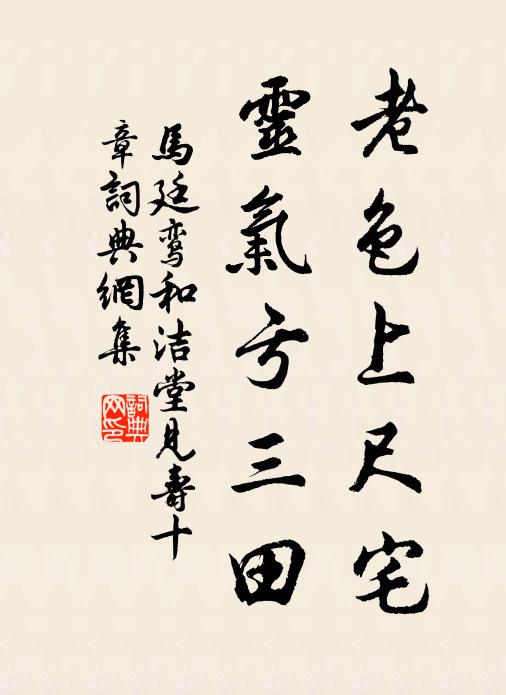 老色上尺宅
靈氣亏三田
馬廷鸾和洁堂見壽十
章詞典網集
詞典
网印